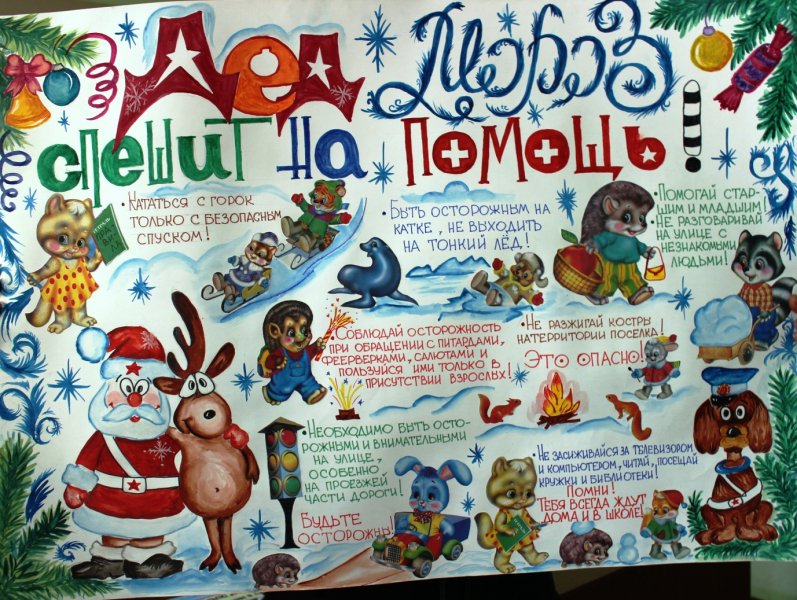 Дед Мороз
спешит на помощь!
• Кататься с горок
только с безопасным
спуском!
• Быть осторожным на
катке, не выходить
на тонкий лёд!
• Помогай стар-
шим и младшим!
• Не разговаривай
на улице с
незнакомыми
людьми!
• Соблюдай осторожность
при обращении с питардами,
феерверками, салютами и
пользуйся ими только в
присутствии взрослых!
• Не разжигай костры
на территории поселка!
Это опасно!
• Необходимо быть осто-
рожными и внимательными
на улице,
особенно
на проезжей
части дороги!
Будьте
осторожны!
• Не засиживайся за телевизором
и компьютером, читай, посещай
кружки и библиотеки!
Помни!
Тебя всегда ждут
дома и в школе!